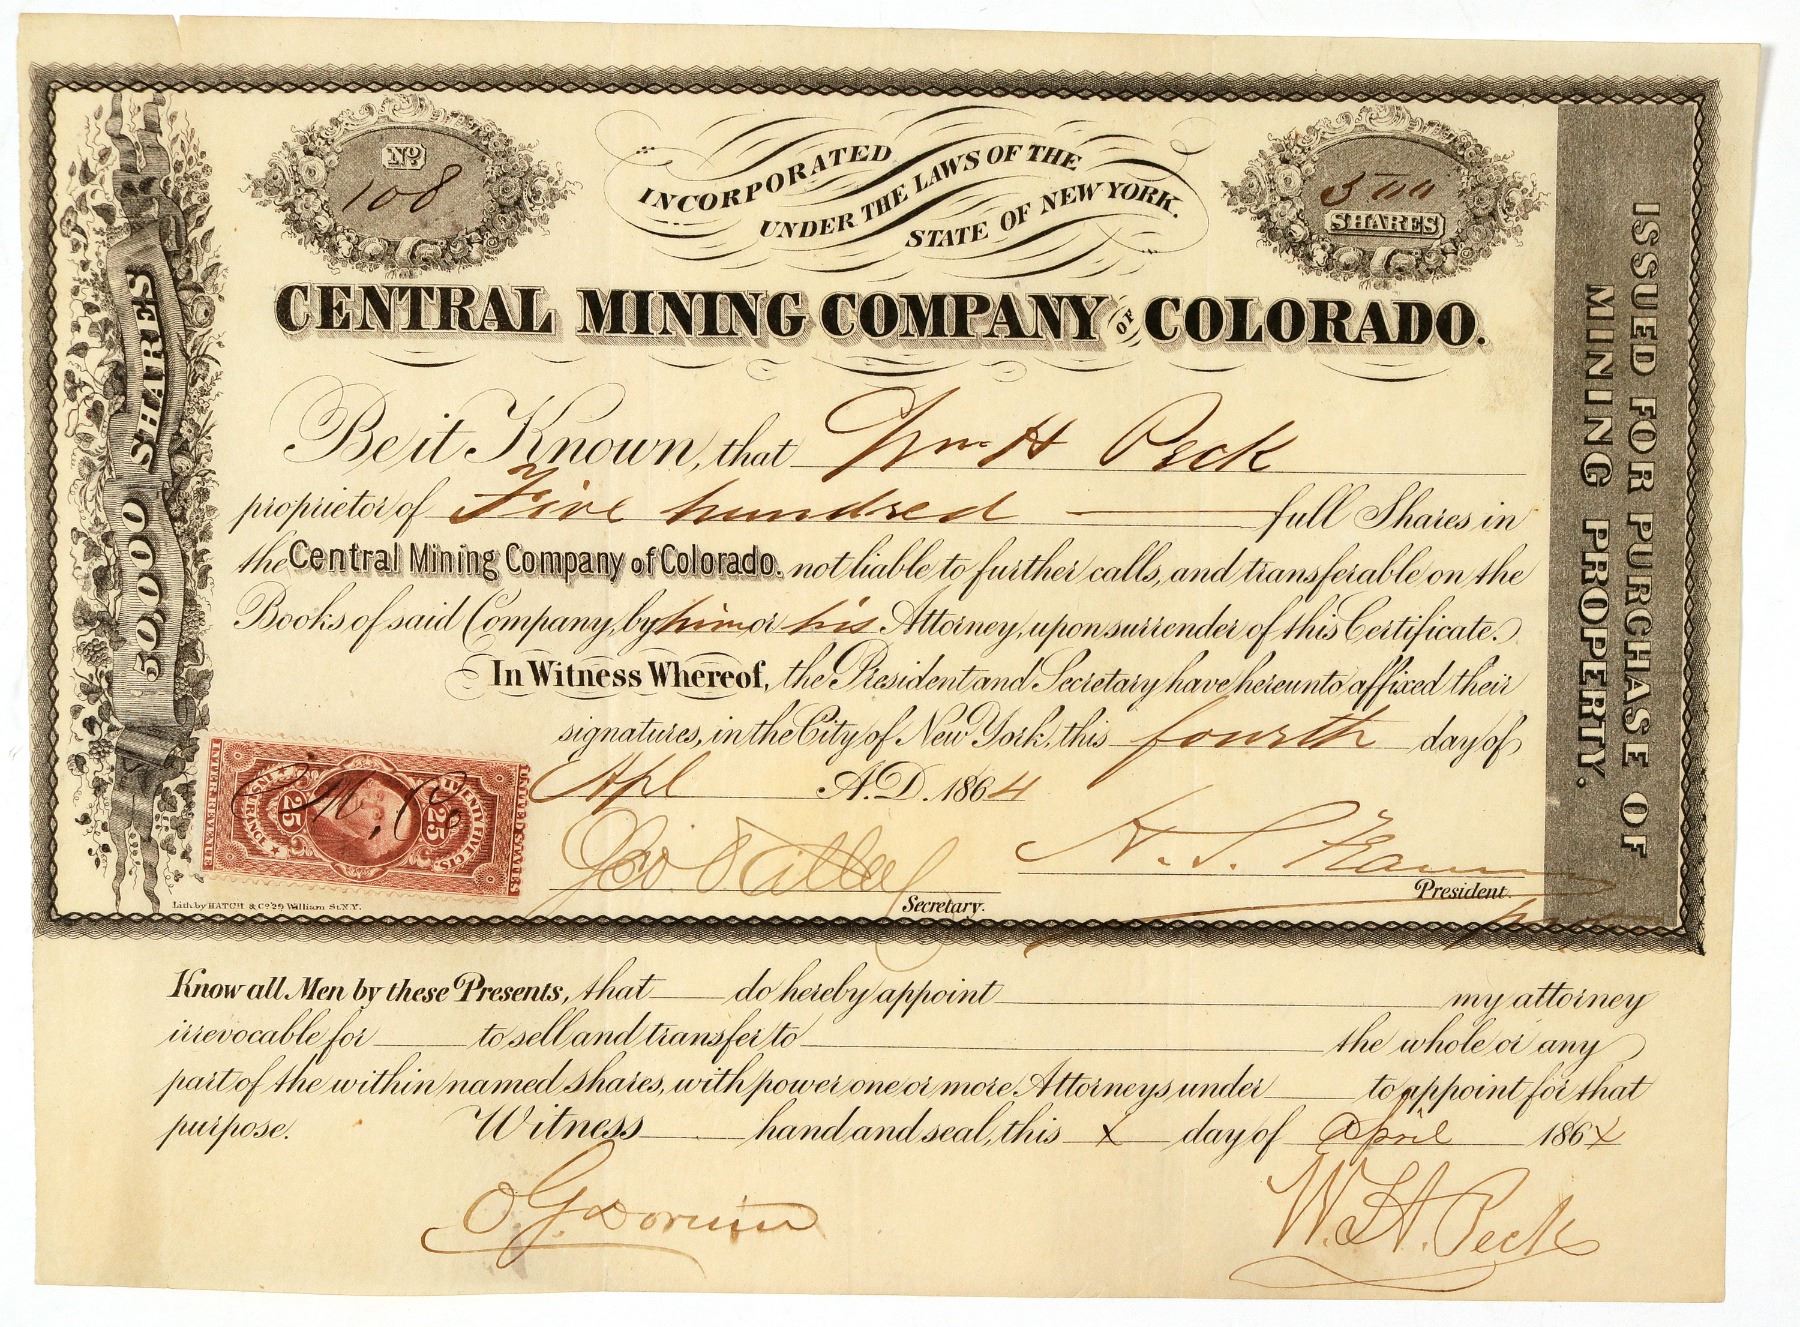 No
108
INCORPORATED
UNDER THE LAWS OF THE
STATE OF NEW YORK.
500
SHARES
CENTRAL MINING COMPANY OF COLORADO.
50,000 SHARES
ISSUED FOR PURCHASE OF
MINING PROPERTY.
Be it Known, that Wm H Peck
proprietor of Five hundred full Shares in
the Central Mining Company of Colorado. not liable to further calls, and transferable on the
Books of said Company, by him or his Attorney, upon surrender of this Certificate.
In Witness Whereof, the President and Secretary have hereunto affixed their
signatures, in the City of New York, this fourth day of
Apl A.D. 1864
UNITED STATES
INSURANCE
TWENTY FIVE CTS
25
25
INTER REVENUE
Geo
Secretary.
H. S.
President.
Lith. by HATCH & Co 29 William St. N.Y.
Know all Men by these Presents, that do hereby appoint my attorney
irrevocable for to sell and transfer to the whole or any
part of the within named shares, with power one or more Attorneys under to appoint for that
purpose. Witness hand and seal, this X day of April 186X
W. H. Peck